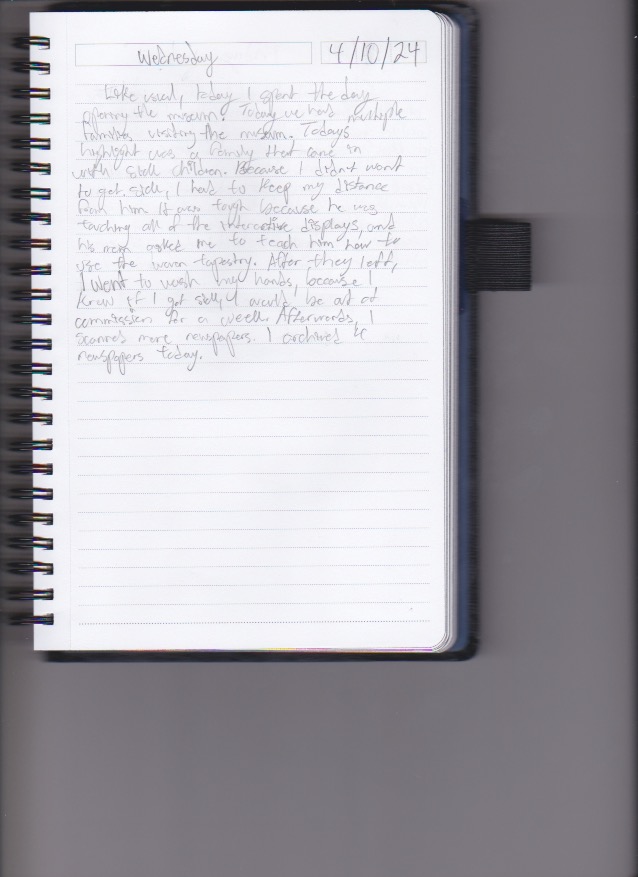 Wednesday
4/10/24
Like usual, today I spent the day
opening the museum. Today we had multiple
families visiting the museum. Todays
highlight was a family that came in
with sick children. Because I didn't want
to get sick, I had to keep my distance
from him. It was tough because he was
touching all of the interactive displays, and
his mom asked me to teach him how to
use the woven tapestry. After they left,
I went to wash my hands, because I
knew if I got sick, I would be out of
commission for a week. Afterwards, I
scanned more newspapers. I archived 4
newspapers today.